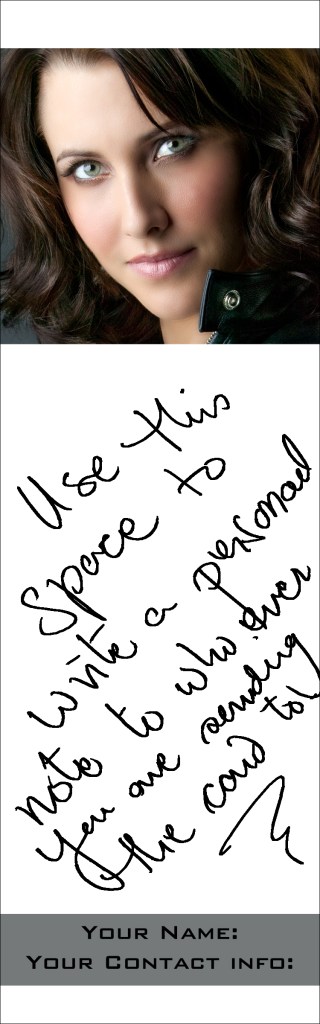 Use this
Space to
write a personal
note to who ever
You are sending
the card to!
Your Name:
Your Contact info: